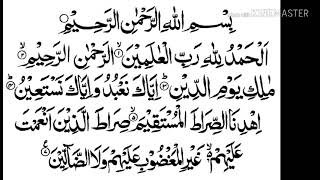 KINEMASTER
بِسْمِ اللهِ الرَّحْمٰنِ الرَّحِيْمِ
اَلْحَمْدُ لِلّٰهِ رَبِّ الْعٰلَمِيْنَ ۙ الرَّحْمٰنِ الرَّحِيْمِ ۙ
مٰلِكِ يَوْمِ الدِّيْنِ ؕ اِيَّاكَ نَعْبُدُ وَاِيَّاكَ نَسْتَعِيْنُ ؕ
اِهْدِنَا الصِّرَاطَ الْمُسْتَقِيْمَ ۙ صِرَاطَ الَّذِيْنَ اَنْعَمْتَ
عَلَيْهِمْ ۙ غَيْرِ الْمَغْضُوْبِ عَلَيْهِمْ وَلَا الضَّآلِّيْنَ